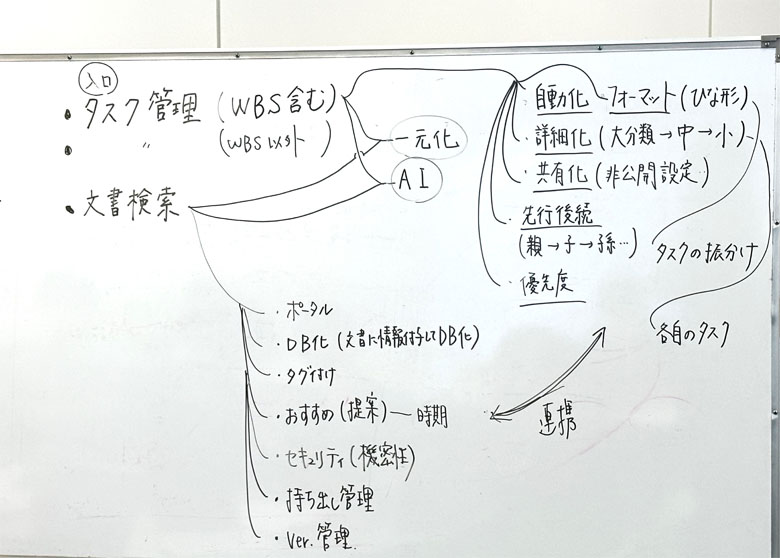 入口
・タスク管理(WBS含む)
・ 〃 (WBS以外)
・文書検索
一元化
AI
自動化 フォーマット(ひな形)
・詳細化(大分類→中→小)
・共有化(非公開設定)
・先行後続
(親→子→孫…)
・優先度
タスクの振分け
各自のタスク
連携
・ポータル
・DB化(文書に情報付与してDB化)
・タグ付け
・おすすめ(提案)―時期
・セキュリティ(機密性)
・持ち出し管理
・Ver.管理